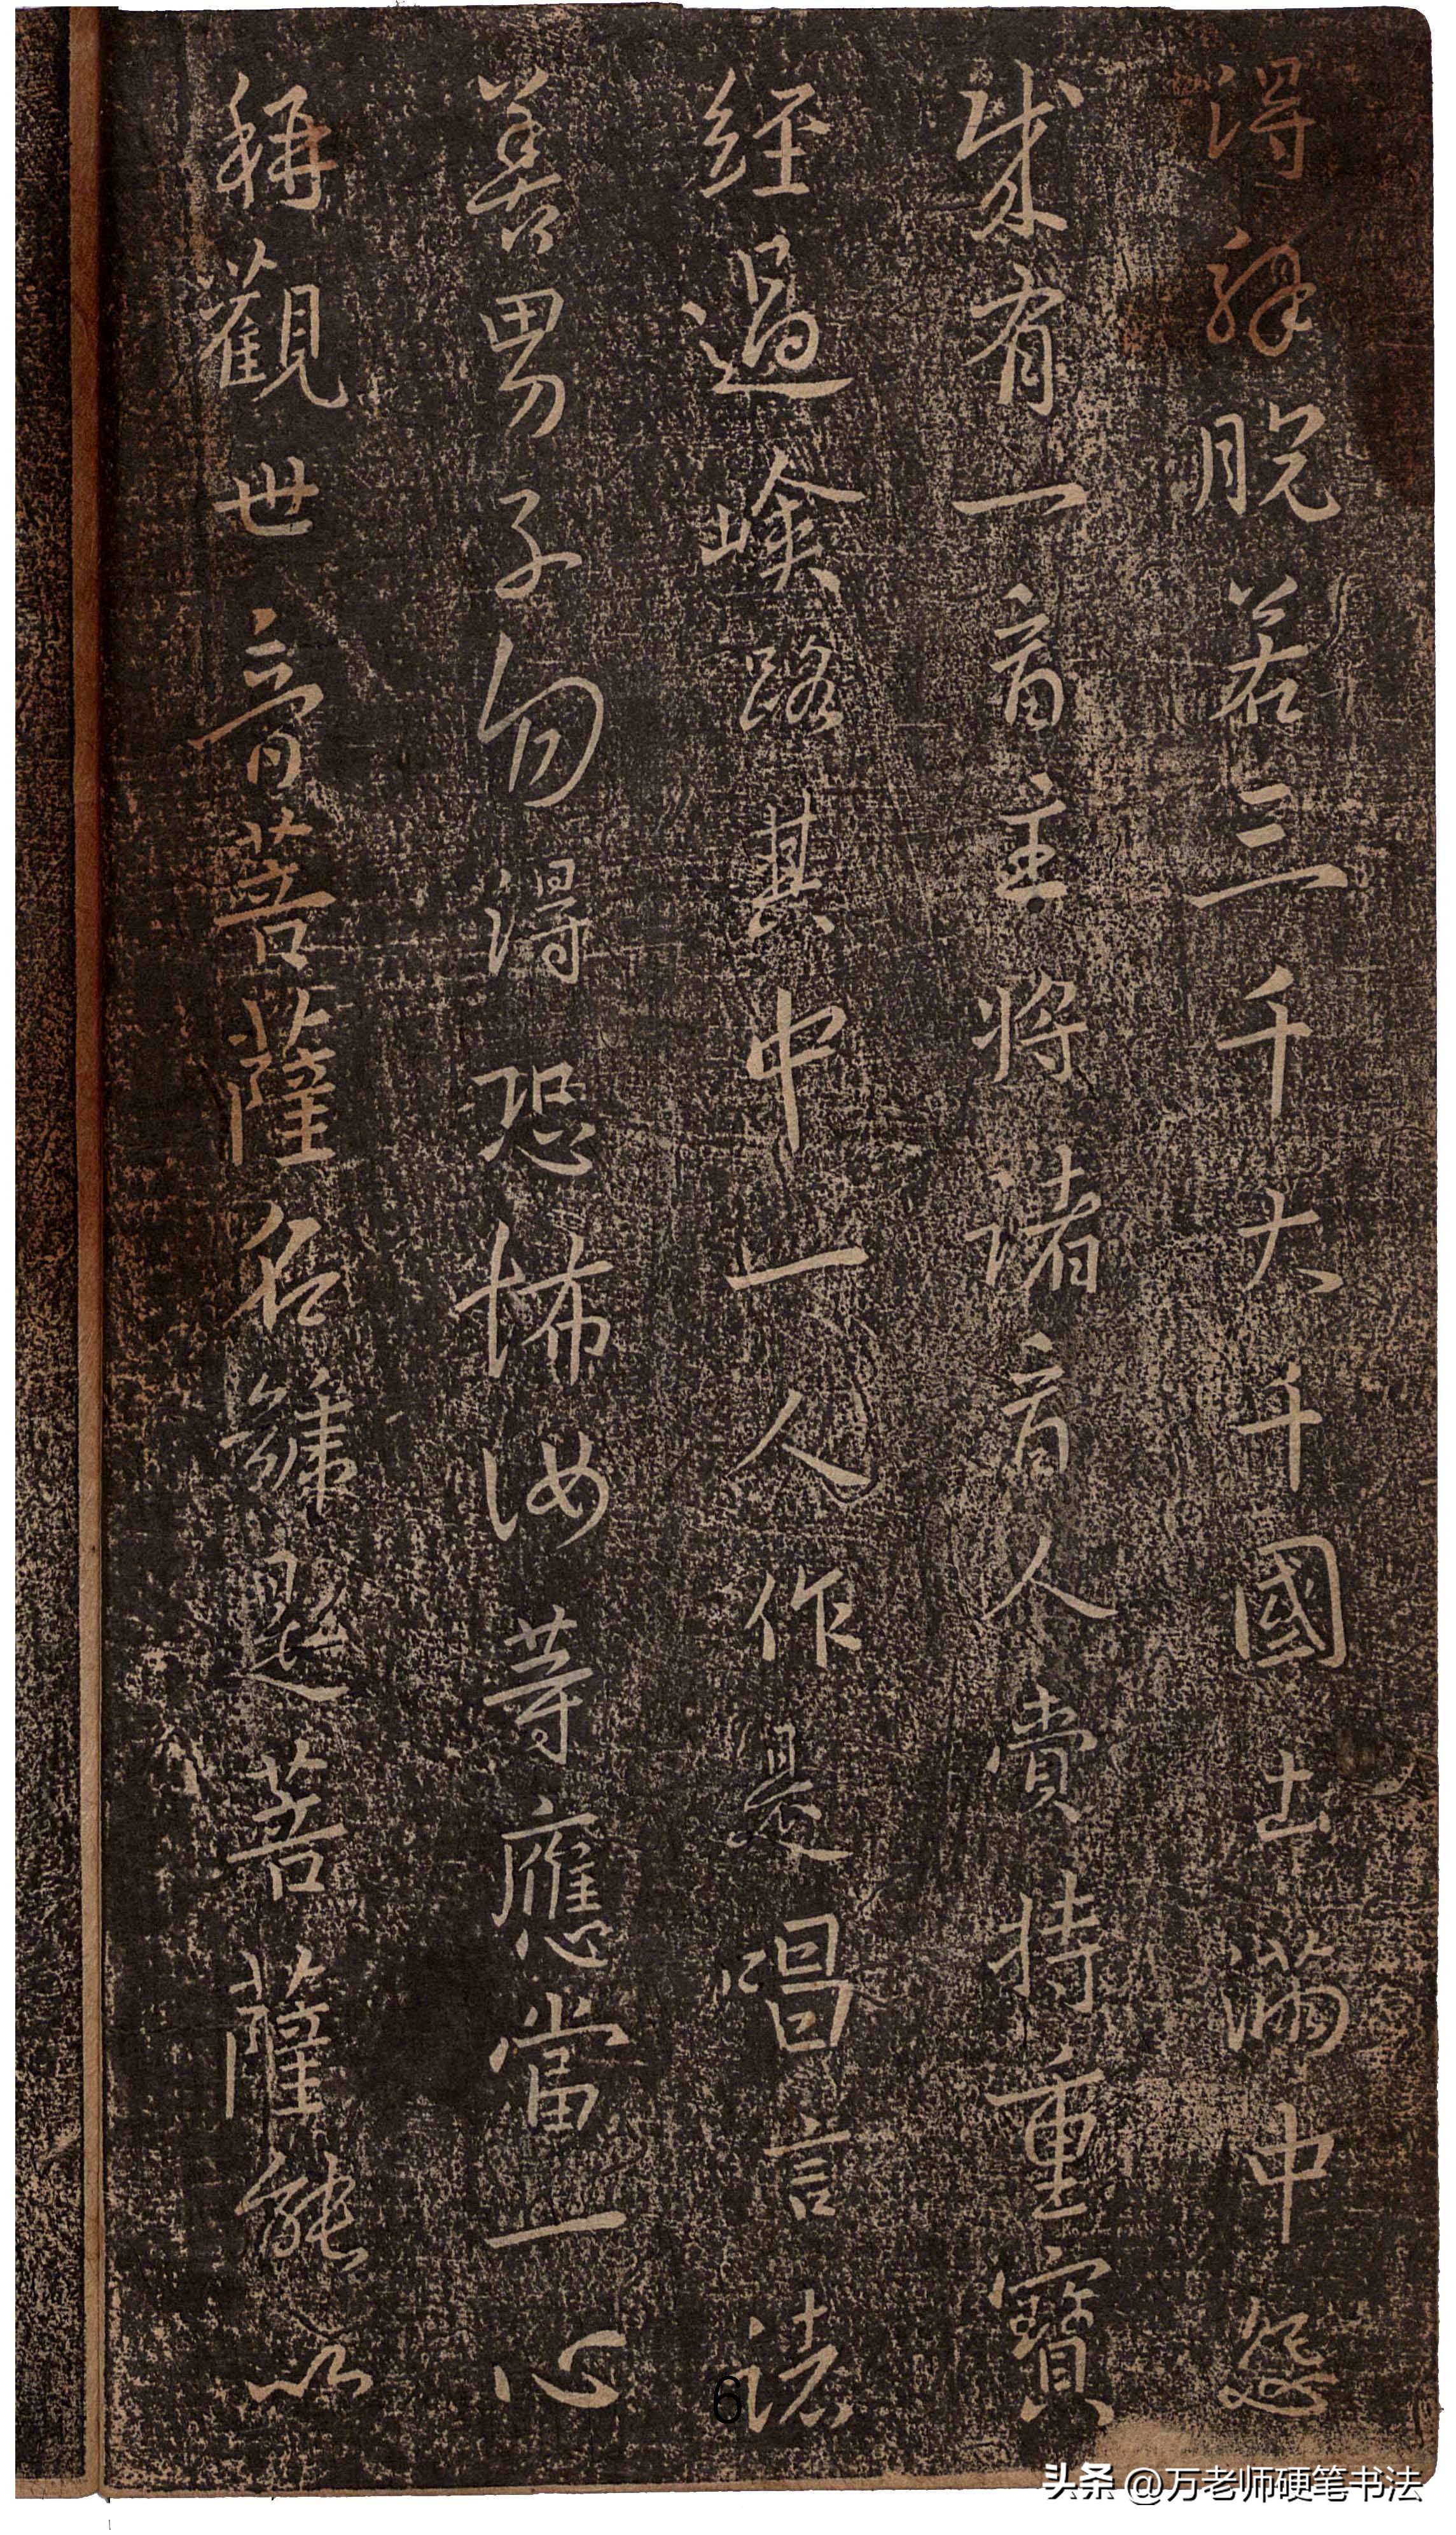 得解脱若三千大千國土滿中怨
賊有一商主將諸商人賫持重寶
經過嶮路其中一人作是唱言諸
善男子勿得恐怖汝等應當一心
稱觀世音菩薩名號是菩薩能以
6
头条 @万老师硬笔书法